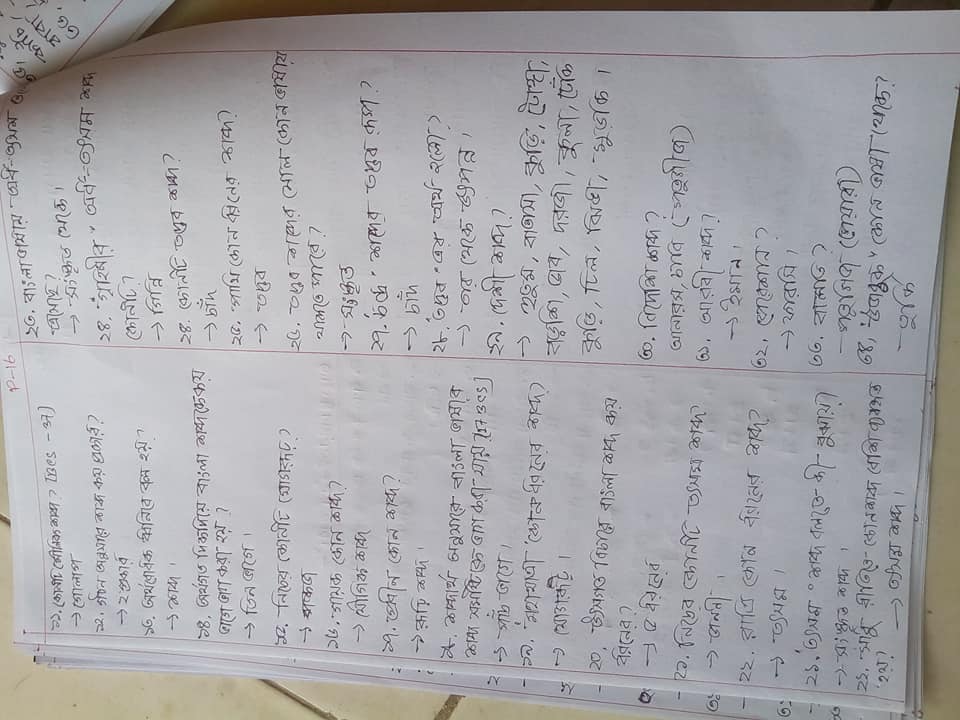 P-16
১১. কোনটি মৌলিক শব্দ? [BCS - 37]
→ গোলাপ
১২. গঠন অনুসারে শব্দ কয় প্রকার?
→ ২ প্রকার
১৩. অর্থবোধক ধ্বনিরে বলা হয়?
→ শব্দ।
১৪. অর্থগত দিকদিয়ে বাংলা শব্দকে কয়
ভাগে ভাগ করা হয়?
→ তিন ভাগে।
১৫. নিচের কোনটি যোগরূঢ়?
→ পঙ্কজ
১৬. গায়ক কোন শব্দ?
→ যৌগিক শব্দ
১৭. প্রবীন কোন শব্দ?
→ রূঢ়ি শব্দ।
১৮. শব্দার্থ অনুসারে বাংলা ভাষার
শব্দ সমষ্টিকে ভাগ করা যায় [17 BCS]
→ পাঁচ ভাগে।
১৯. 'মহাযাত্রা' কোন ধরনের শব্দ?
→ যোগরূঢ়।
২০. উৎসগত বিচারে বাংলা শব্দ কয়
ধরনের?
→ ৫ ধরনের
২১. নিচের কোনটি তৎসম শব্দ?
→ জননী।
২২. রাত্রি কোন ধরনের শব্দ?
→ তৎসম।
২১. 'তৎসম' শব্দ বলতে কী বুঝায়?
→ সংস্কৃত শব্দ।
২১. সাধু রীতিতে কোন শব্দ বেশি ব্যবহৃত
হয়?
→ তৎসম শব্দ।
২৩. বাংলা ভাষায় অর্ধ-তৎসম
এসেছে?
→ সংস্কৃত থেকে।
২৪. "গৃহিনীর" অর্ধ-তৎসম শব্দ
কোনটি?
→ গিন্নি
২৪. কোনটি তদ্ভব শব্দ?
→ চাঁদ
২৫. পাখি কোন ধরনের শব্দ?
→ তদ্ভব
২৬. তদ্ভব শব্দের মোল কোন ভাষায়
থাকতে পারে?
→ সংস্কৃত
২৭. 'চন্দ্র' শব্দের তদ্ভব রূপ?
→ চাঁদ
২৮. 'তদ্ভব' এর অর্থ হলো?
→ তার থেকে উৎপন্ন।
২৯. দেশী শব্দ?
→ হুতুম, বাতাসা, কুড়ি, টোঙ্গা,
বড়শি, ডাব, দরজা, কুলা, ঢেঁকি
কুড়ি, ঢিল, ঝিঙা, মুড়কি।
৩০. বিদেশি শব্দ?
আনারস, চাবি (পর্তুগীজ)
৩১. আরবী শব্দ?
→ ঈমান।
৩২. পেরেশান?
→ ফারসি।
৩৩. বালতি?
৩৪. "উজবুক" কোন ভাষা থেকে?
- তুর্কি